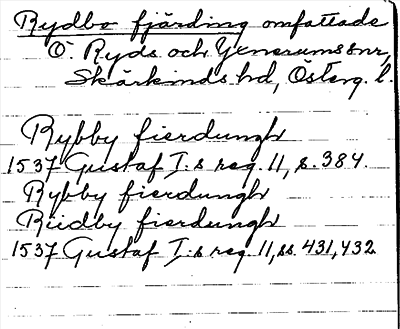 Rydbo fjärding omfattade
Ö. Ryds och Yxnerums snr,
Skärkinds hd, Österg. l.
Rybby fierdungh
1537 Gustaf I:s reg. 11, s. 384.
Rybby fierdungh
Rüdby fierdungh
1537 Gustaf I:s reg. 11, ss. 431, 432